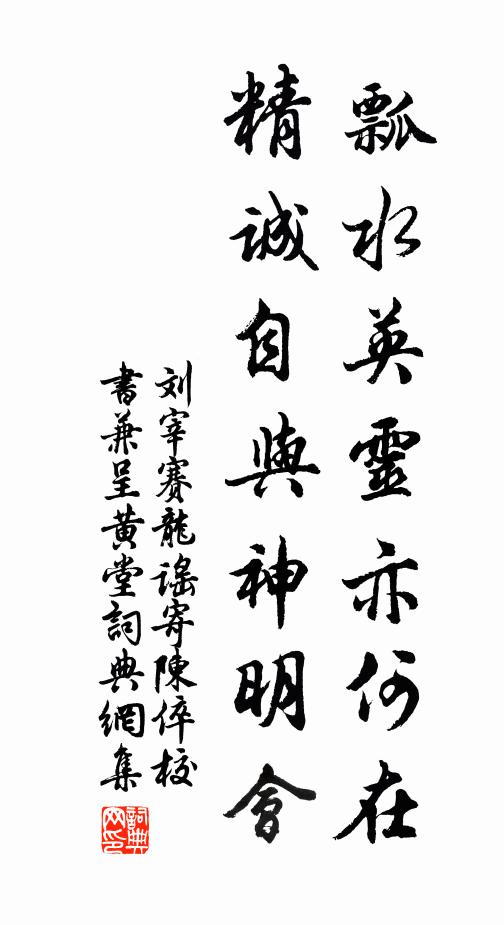 瓢水英靈亦何在
精誠自與神明會
刘宰賽龍謠寄陳倅校
書兼呈黄堂詞典網集
詞典
网印